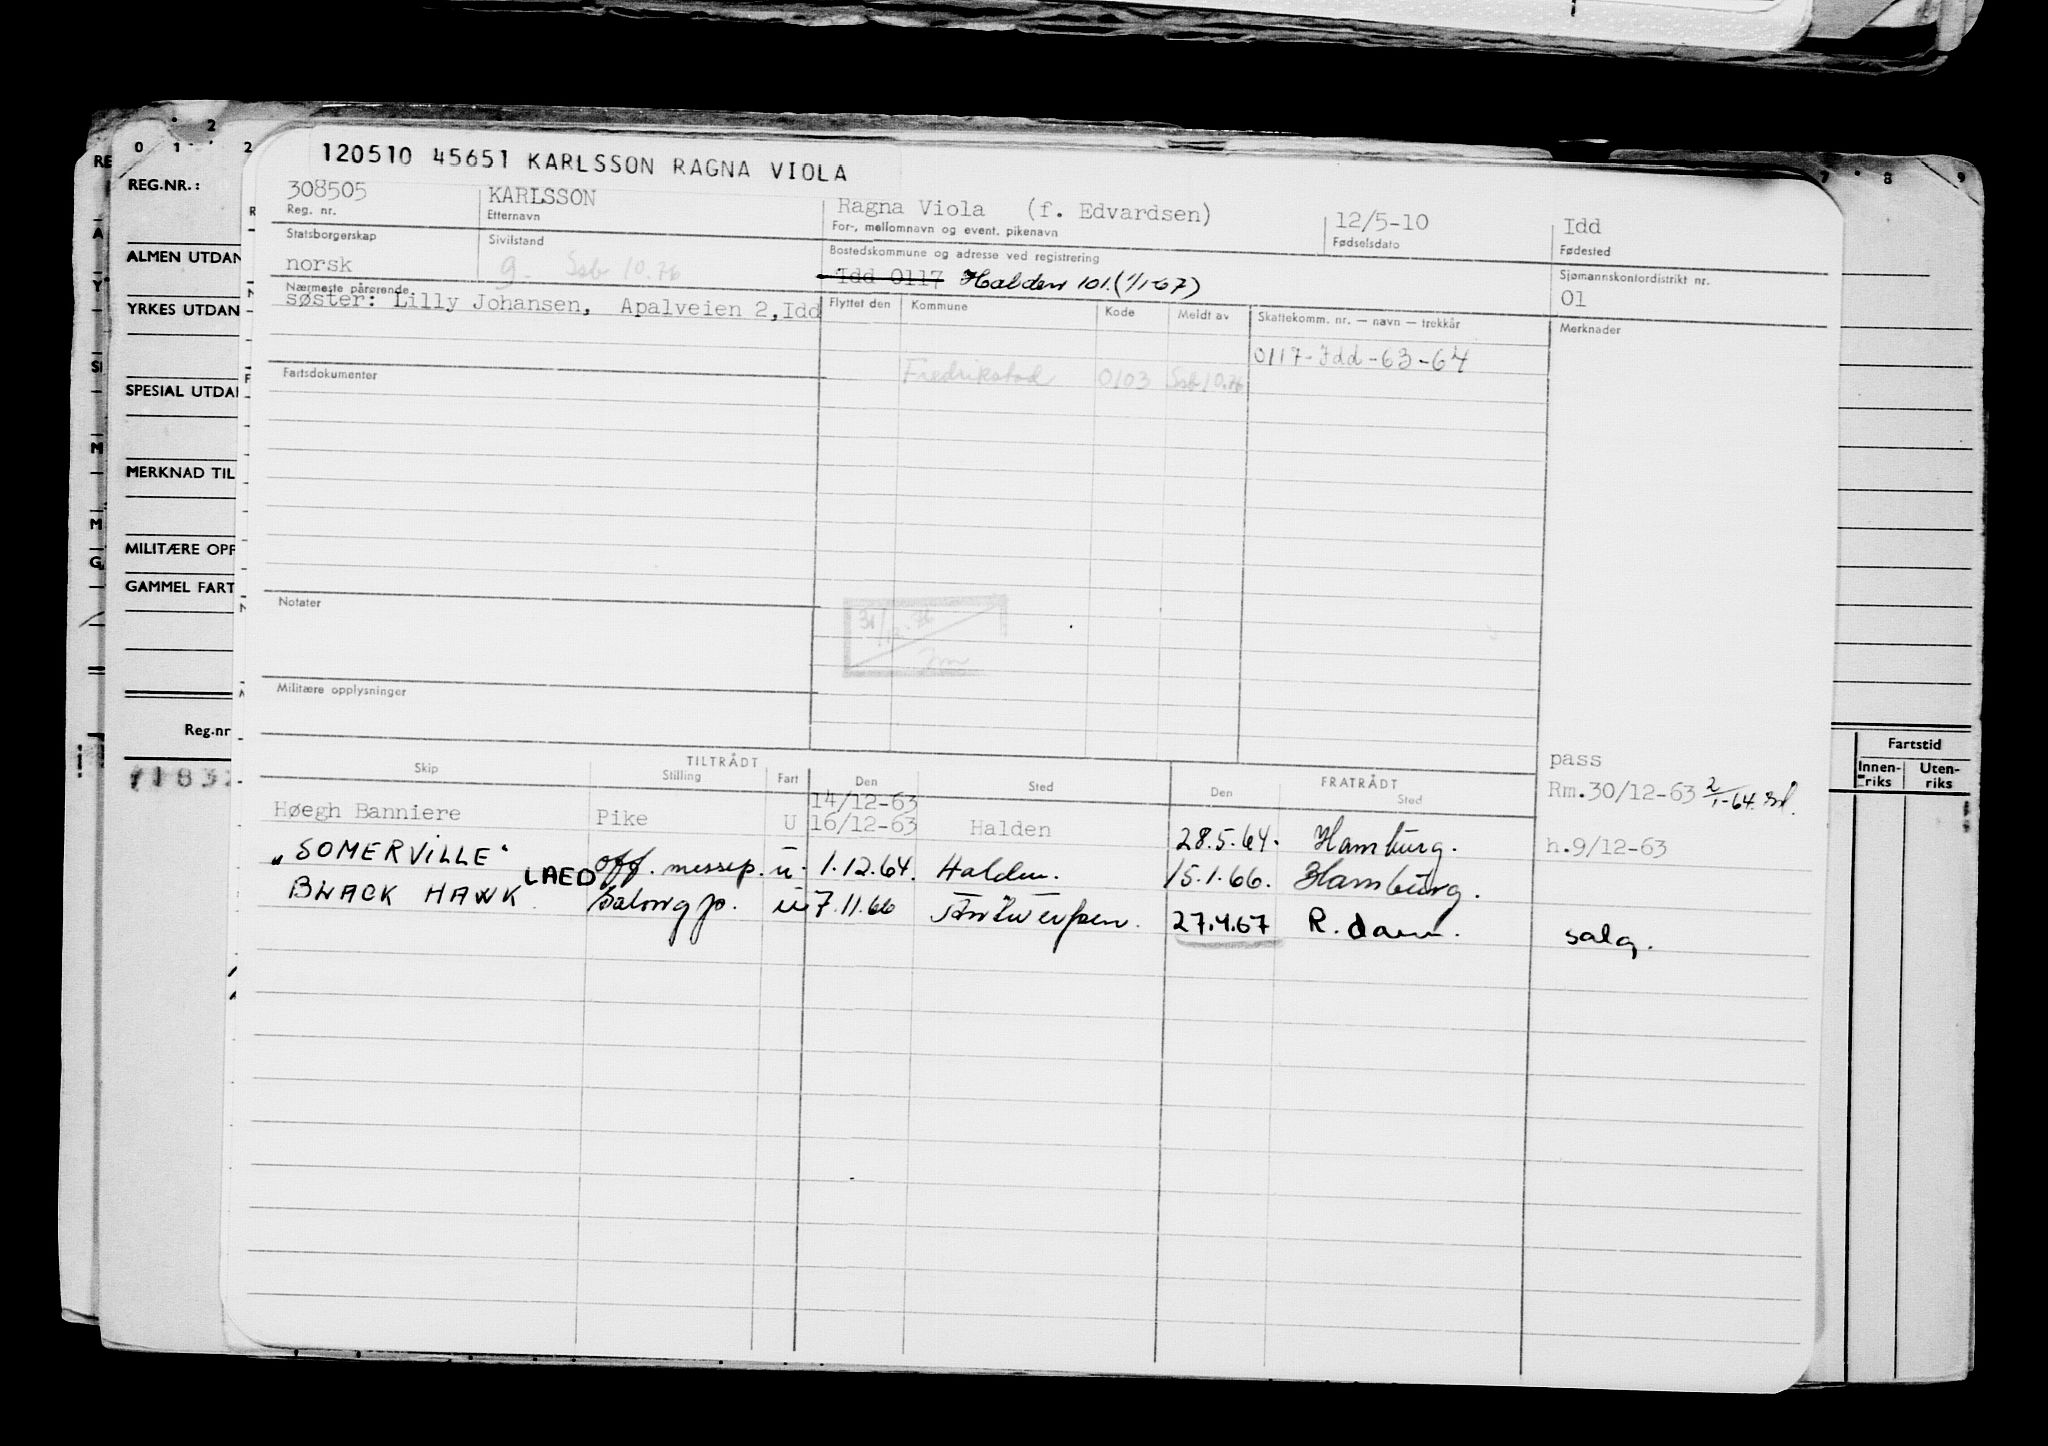 0 1 2
2
7 8 9
RE
REG.NR.:
ALMEN UTDAN
YRKES UTDAN
SPESIAL UTDA
MERKNAD TIL
MILITÆRE OPP
GAMMEL FART
Reg.nr
120510 45651 KARLSSON RAGNA VIOLA
308505 KARLSSON Ragna Viola (f. Edvardsen) 12/5-10 Idd
Reg. nr. Etternavn For-, mellomnavn og event. pikenavn Fødselsdato Fødested
Statsborgerskap Sivilstand Bostedskommune og adresse ved registrering Sjømannskontordistrikt nr.
norsk g. Ssb 10.76 Idd 0117 Halden 101. (1/1-67) 01
Nærmeste pårørende Flyttet den Kommune Kode Meldt av Skattekomm. nr. — navn — trekkår Merknader
søster: Lilly Johansen, Apalveien 2, Idd
0117-Idd-63-64
Fartsdokumenter Fredrikstad 0103 Ssb 10.76
Notater
31/12.76
Militære opplysninger
TILTRÅDT FRATRÅDT pass
Skip Stilling Fart Den Sted Den Sted Rm.30/12-63 2/1-64.
14/12-63
Høegh Banniere Pike U 16/12-63 Halden 28.5.64. Hamburg. h.9/12-63
"SOMERVILLE" off. messep. u. 1.12.64. Halden. 15.1.66. Hamburg.
BLACK HAWK LAED Salongp. u 7.11.66 Antwerpen. 27.4.67 R.dam. salg.
Fartstid
Innen-riks Uten-riks